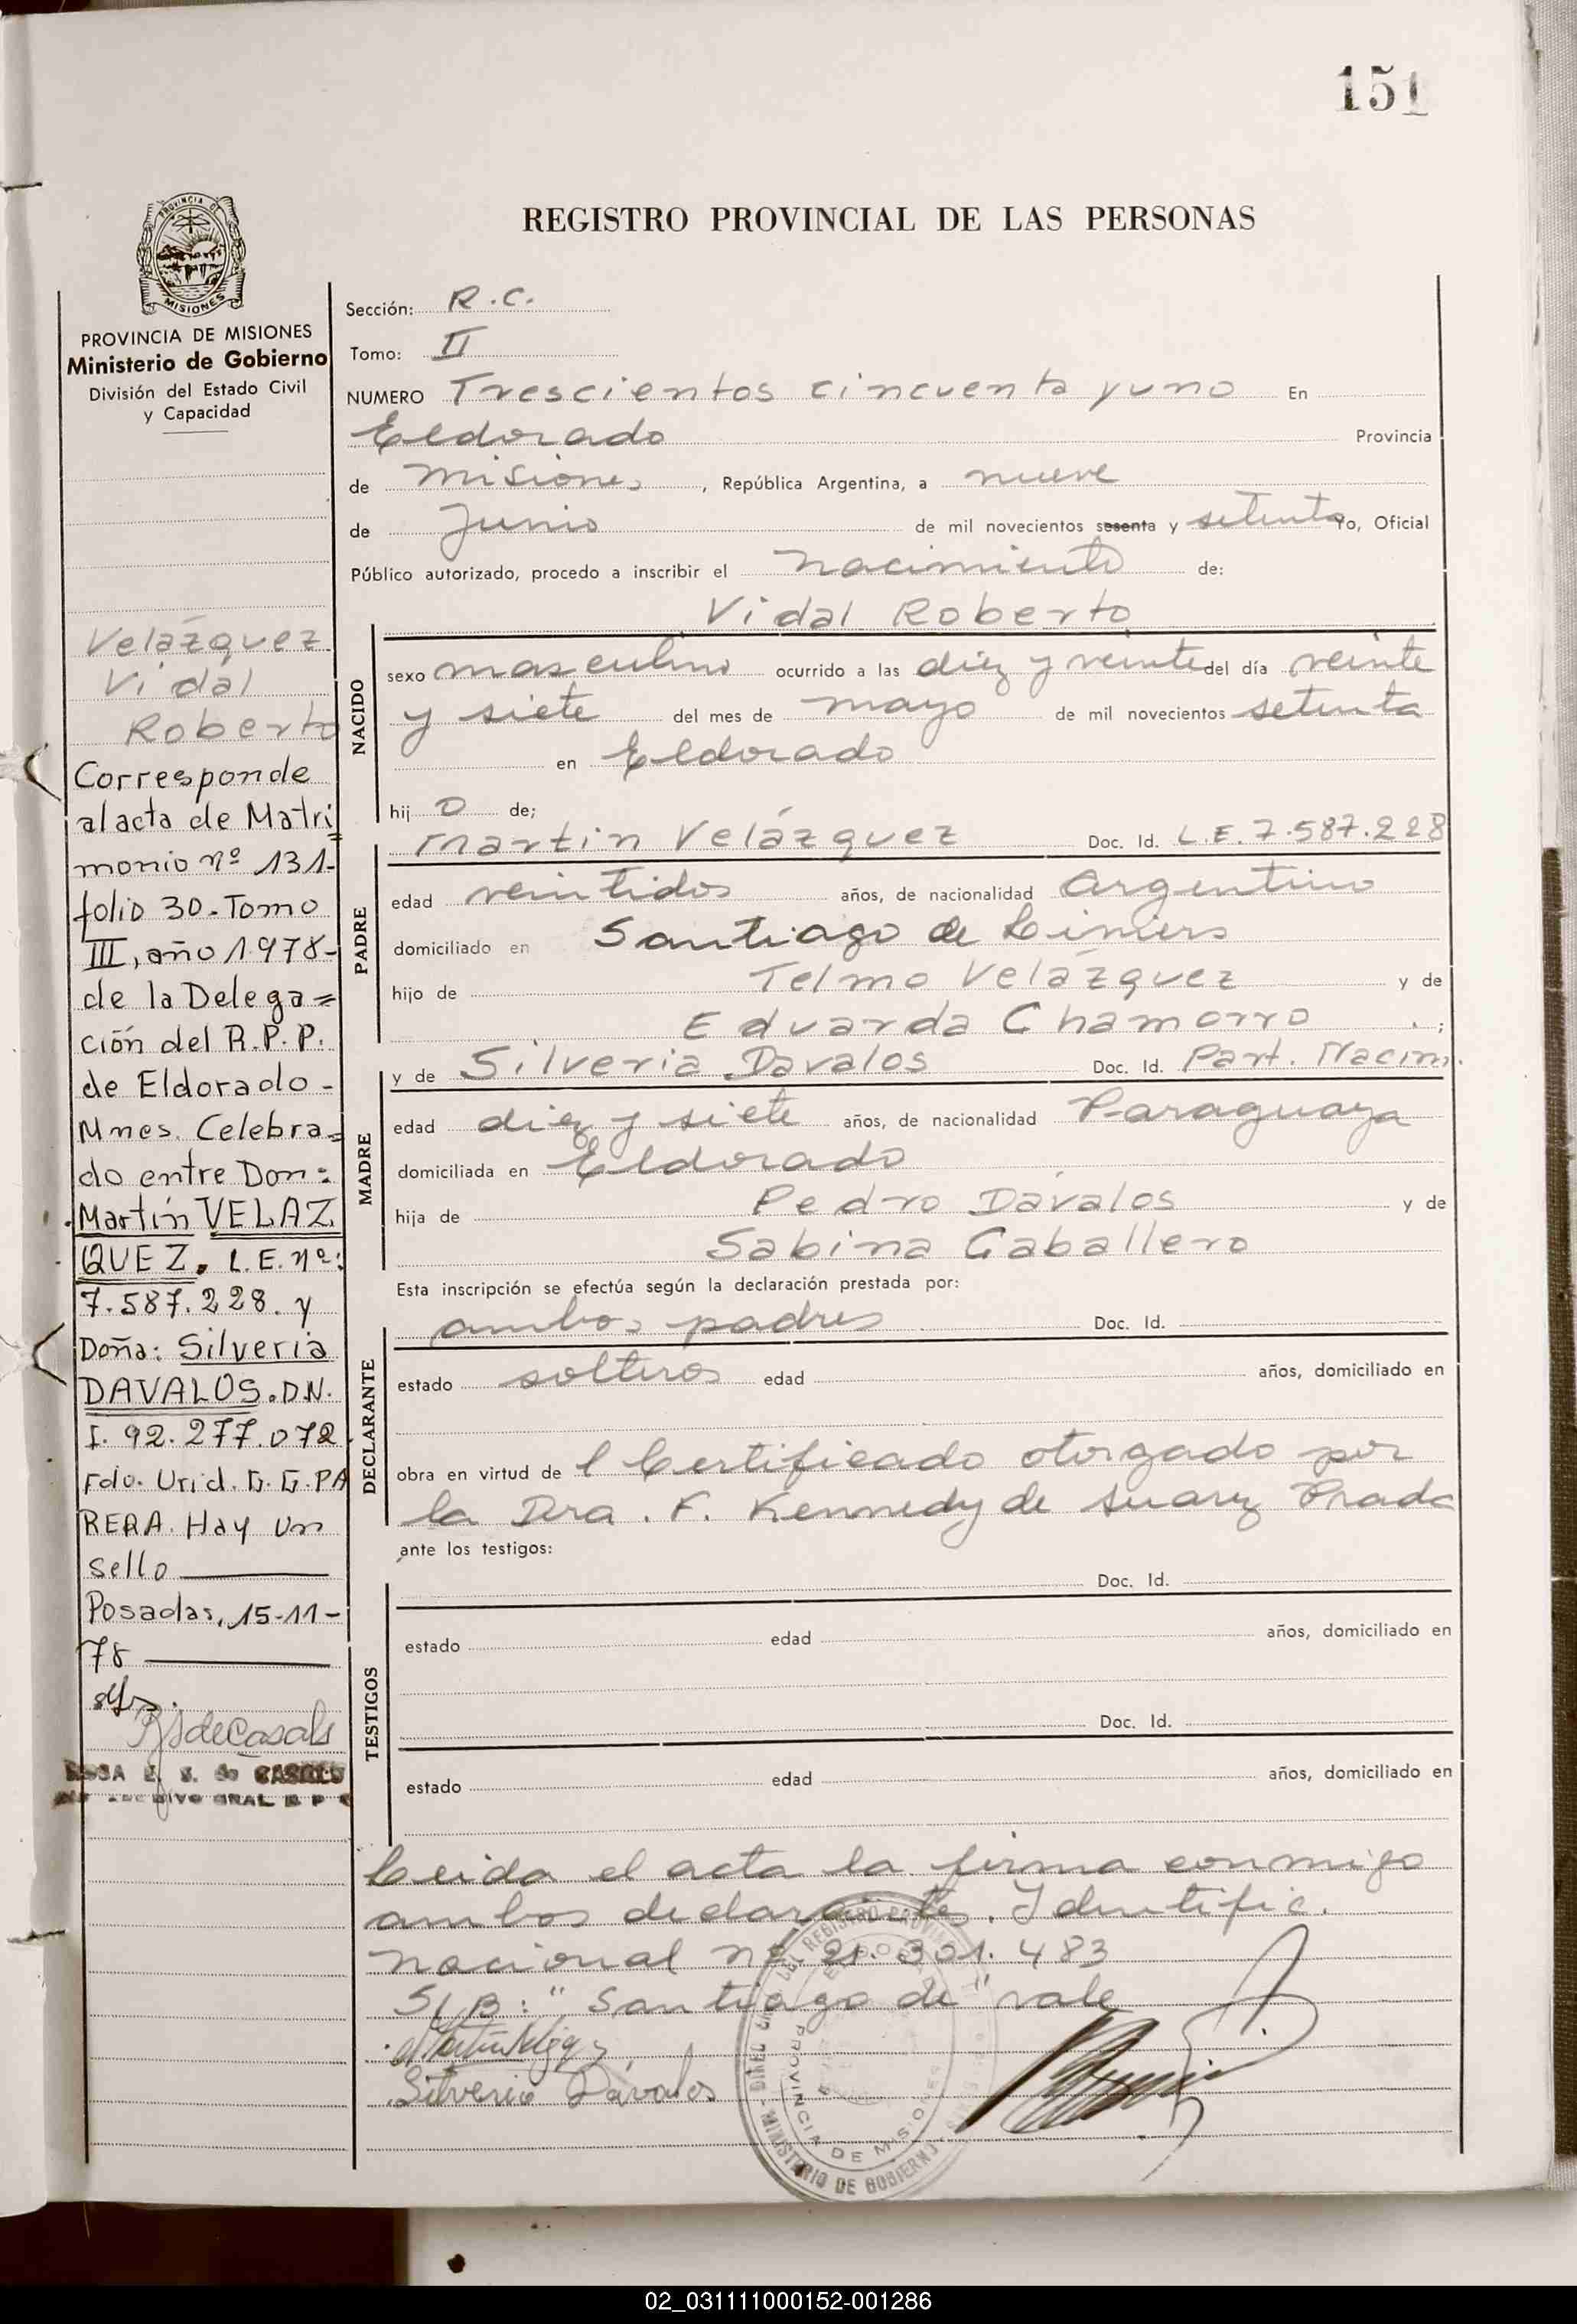 151
REGISTRO PROVINCIAL DE LAS PERSONAS
PROVINCIA DE MISIONES
PROVINCIA DE MISIONES
Ministerio de Gobierno
División del Estado Civil
y Capacidad
Velázquez
Vidal
Roberto
Corresponde
al acta de Matri
monio nº 131-
folio 30-Tomo
III, año 1.978-
de la Delega=
ción del R.P.P.
de Eldorado-
Mnes. Celebra=
do entre Don:
Martín VELAZ
QUEZ. L.E. nº:
7.587.228. y
Doña: Silveria
DAVALOS. D.N.
I. 92.277.072
Fdo. Urid. G. G. PA
RERA. Hay un
sello
Posadas, 15-11-
78
RJdeCasals
Sección: R.C.
Tomo: II
NUMERO Trescientos cincuenta y uno En
Eldorado Provincia
de Misiones, República Argentina, a nueve
de Junio de mil novecientos sesenta y setenta Yo, Oficial
Público autorizado, procedo a inscribir el nacimiento de:
Vidal Roberto
NACIDO
sexo masculino ocurrido a las diez y veinte del día veinte
y siete del mes de mayo de mil novecientos setenta
en Eldorado
hij o de;
Martin Velázquez Doc. Id. L.E. 7.587.228
PADRE
edad veintidos años, de nacionalidad Argentino
domiciliado en Santiago de Liniers
hijo de Telmo Velázquez y de
Eduarda Chamorro ;
y de Silveria Davalos Doc. Id. Part. Nacim.
MADRE
edad diez y siete años, de nacionalidad Paraguaya
domiciliada en Eldorado
hija de Pedro Dávalos y de
Sabina Caballero
Esta inscripción se efectúa según la declaración prestada por:
ambos padres Doc. Id.
DECLARANTE
estado solteros edad años, domiciliado en
obra en virtud de l Certificado otorgado por
la Dra. F. Kennedy de Suarez Prada
ante los testigos:
Doc. Id.
TESTIGOS
estado edad años, domiciliado en
Doc. Id.
estado edad años, domiciliado en
Leida el acta la firma conmigo
ambos declarantes. Identific.
nacional nº 21.301.483
S/B: "Santiago de" vale
Silveria Dávalos
PROVINCIA DE MISIONES
MINISTERIO DE GOBIERNO
02_031111000152-001286